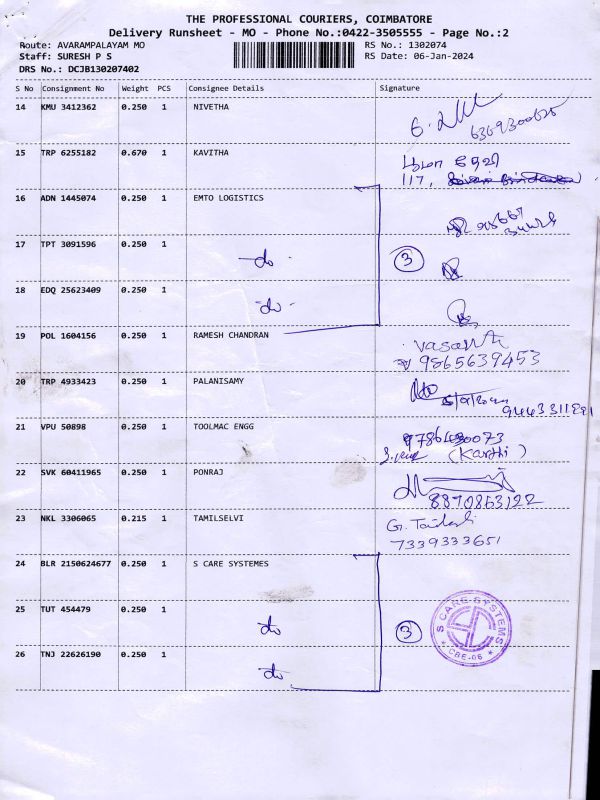 THE PROFESSIONAL COURIERS, COIMBATORE
Delivery Runsheet - MO - Phone No.:0422-3505555 - Page No.:2
Route: AVARAMPALAYAM MO RS No.: 1302074
Staff: SURESH P S RS Date: 06-Jan-2024
DRS No.: DCJB130207402
S No Consignment No Weight PCS Consignee Details Signature
14 KMU 3412362 0.250 1 NIVETHA
6369300625
15 TRP 6255182 0.670 1 KAVITHA
117,
16 ADN 1445074 0.250 1 EMTO LOGISTICS
17 TPT 3091596 0.250 1 do 3
18 EDQ 25623409 0.250 1 do
19 POL 1604156 0.250 1 RAMESH CHANDRAN Vasanth
9865639453
20 TRP 4933423 0.250 1 PALANISAMY
21 VPU 50898 0.250 1 TOOLMAC ENGG
(Karthi)
22 SVK 60411965 0.250 1 PONRAJ
8870863122
23 NKL 3306065 0.215 1 TAMILSELVI G.
7339333651
24 BLR 2150624677 0.250 1 S CARE SYSTEMES
25 TUT 454479 0.250 1 do 3 S CARE SYSTEMS
* CBE-06 *
26 TNJ 22626190 0.250 1 do